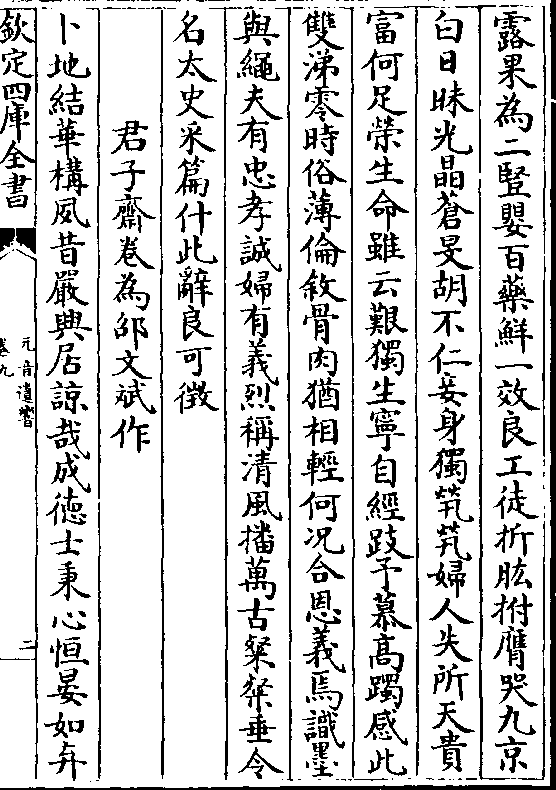 露果為二豎嬰百藥鮮一效良工徒折肱拊膺哭九京
白日昧光晶蒼旻胡不仁妾身獨煢煢婦人失所天貴
富何足榮生命雖云艱獨生寧自經跂予慕高躅感此
雙涕零時俗薄倫敘骨肉猶相輕何况合恩義焉識墨
與繩夫有忠孝誠婦有義烈稱清風播萬古粲粲垂令
名太史采篇什此辭良可徴
君子齋卷為邵文斌作
卜地結華構夙昔嚴興居諒哉成徳士秉心恒晏如弁
欽定四庫全書
元音遺響
卷九
二